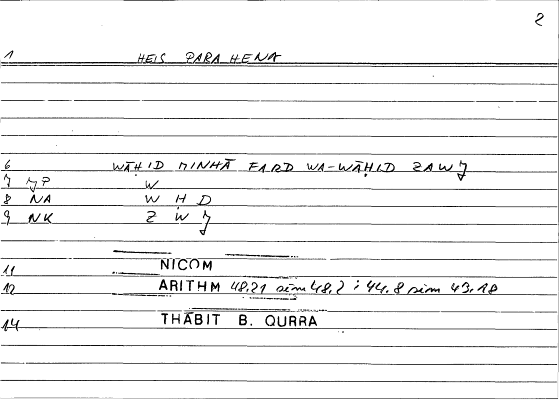 2
1 HEIS PARA HENA
6 WĀḤID MINHĀ FARD WA-WĀḤID ZAWJ
7 JP W
8 NA W Ḥ D
9 NK Z W J
11 NICOM
12 ARITHM 48.21 sim 48.2 ; 44.8 sim 43.18
14 THĀBIT B. QURRA